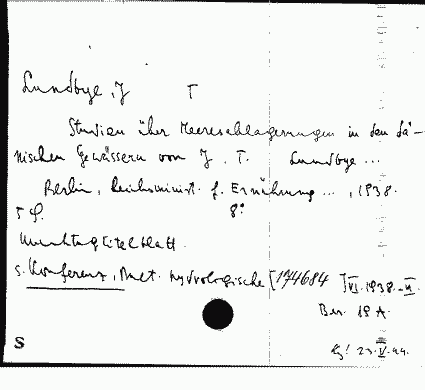 Lundbye, J. T
Studien über Meeresablagerungen in den dä-
nischen Gewässern von J. T. Lundbye ...
Berlin, Reichsminist. f. Ernährung ..., 1938.
5 S. 8°
Umschlagtitelblatt.
s. Konferenz, Balt. hydrologische [174684] VI. 1938 -
Ber. 19 A.
S 23. V. 44.